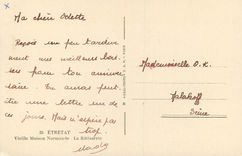 Ma chère Odette
Reçois un peu tardive
ment mes meilleurs bai
sers pour ton anniver
saire. Tu auras peut
être une lettre un de
ces jours. Mais n'espère pas
trop.
Mademoiselle O. K.
Malakoff
Seine
25 ÉTRETAT
Vieille Maison Normande - La Rôtisserie